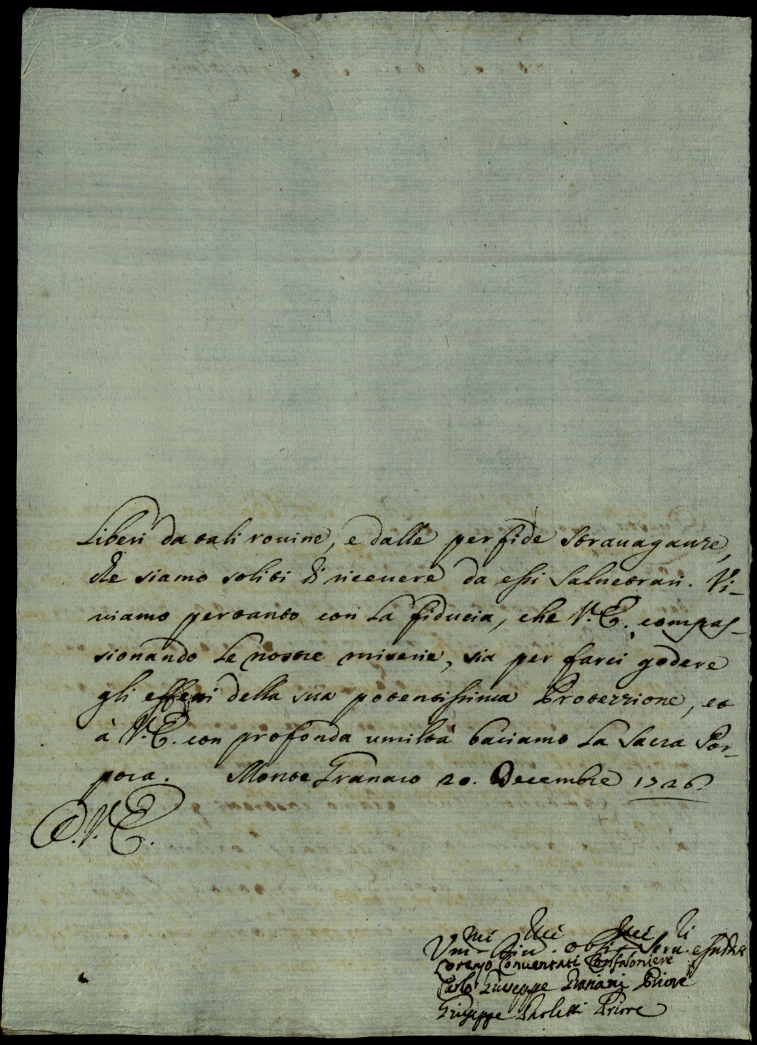 Liberi da tali rouine, e dalle perfide strauaganze,
che siamo soliti di riceuere da essi Saluatori. Vi-
uiamo pertanto con la fiducia, che V. E. compas-
sionando le nostre miserie, sia per farci godere
gli effetti della sua potentissima Protezzione, et
à V. E. con profonda umiltà baciamo la Sacra Por-
pora. Monte Granaro 20. Decembre 1726.
D. V. E.
Vmi Diui obbmi Seru.
Lorenzo Conuentati Confaloniere
Carlo Giuseppe Priore
Giuseppe Paoletti Priore